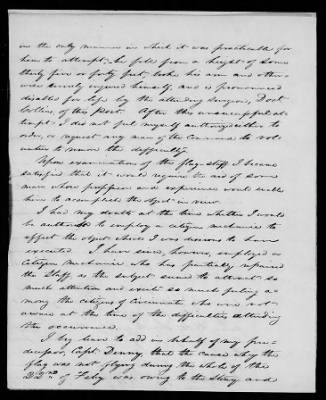 in the only manner in which it was practicable for
him to attempt; he fell from a height of some
thirty five or forty feet, broke his arm and other-
wise severely injured himself, and is pronounced
disabled for life by the attending Surgeon, Doct
Collins, of this Post. After this unsuccessful at-
tempt I did not feel myself authorized either to
order, or request any man of the Command to vol-
unteer to remove the difficulty.
Upon examination of the flag-staff I became
satisfied that it would require the aid of some
man whose profession and experience would enable
him to accomplish the object in view.
I had my doubts at the time whether I would
be authorized to employ a citizen mechanic to
effect the object which I was desirous to have
executed. I have since, however, employed a
citizen mechanic who has partially repaired
the Staff, as the subject seemed to attract so
much attention and excite so much feeling a-
mong the citizens of Cincinnati who were not
aware at the time of the difficulties attending
the occurrence.
I beg leave to add in behalf of my pre-
decessor, Capt. Denny, that the cause why the
flag was not flying during the whole of the
22nd of Feby was owing to the Stormy and